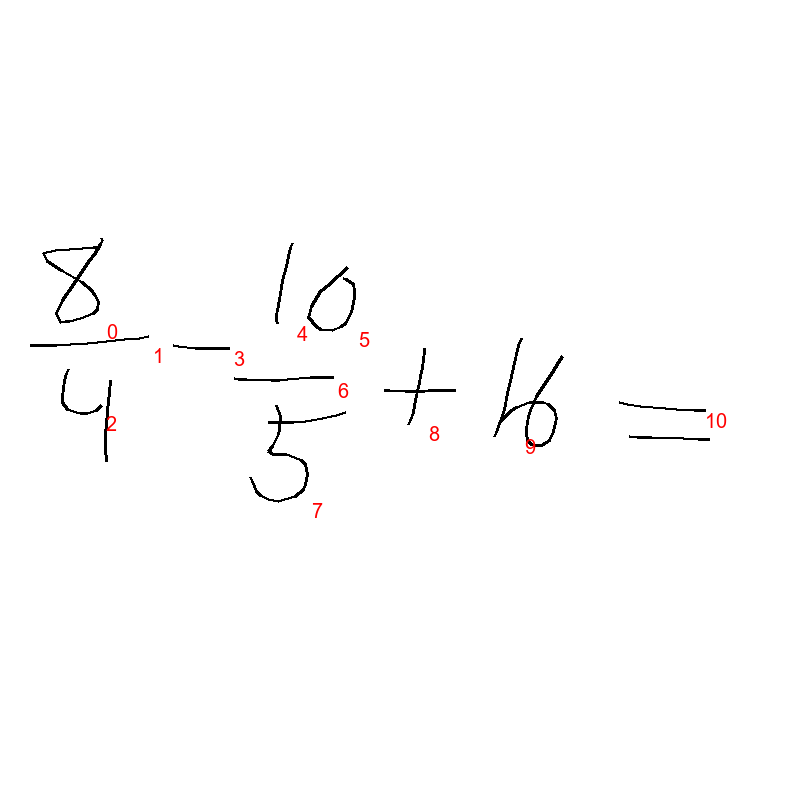 8/4 - 10/5 + 16 =
0 1 2 3 4 5 6 7 8 9 10